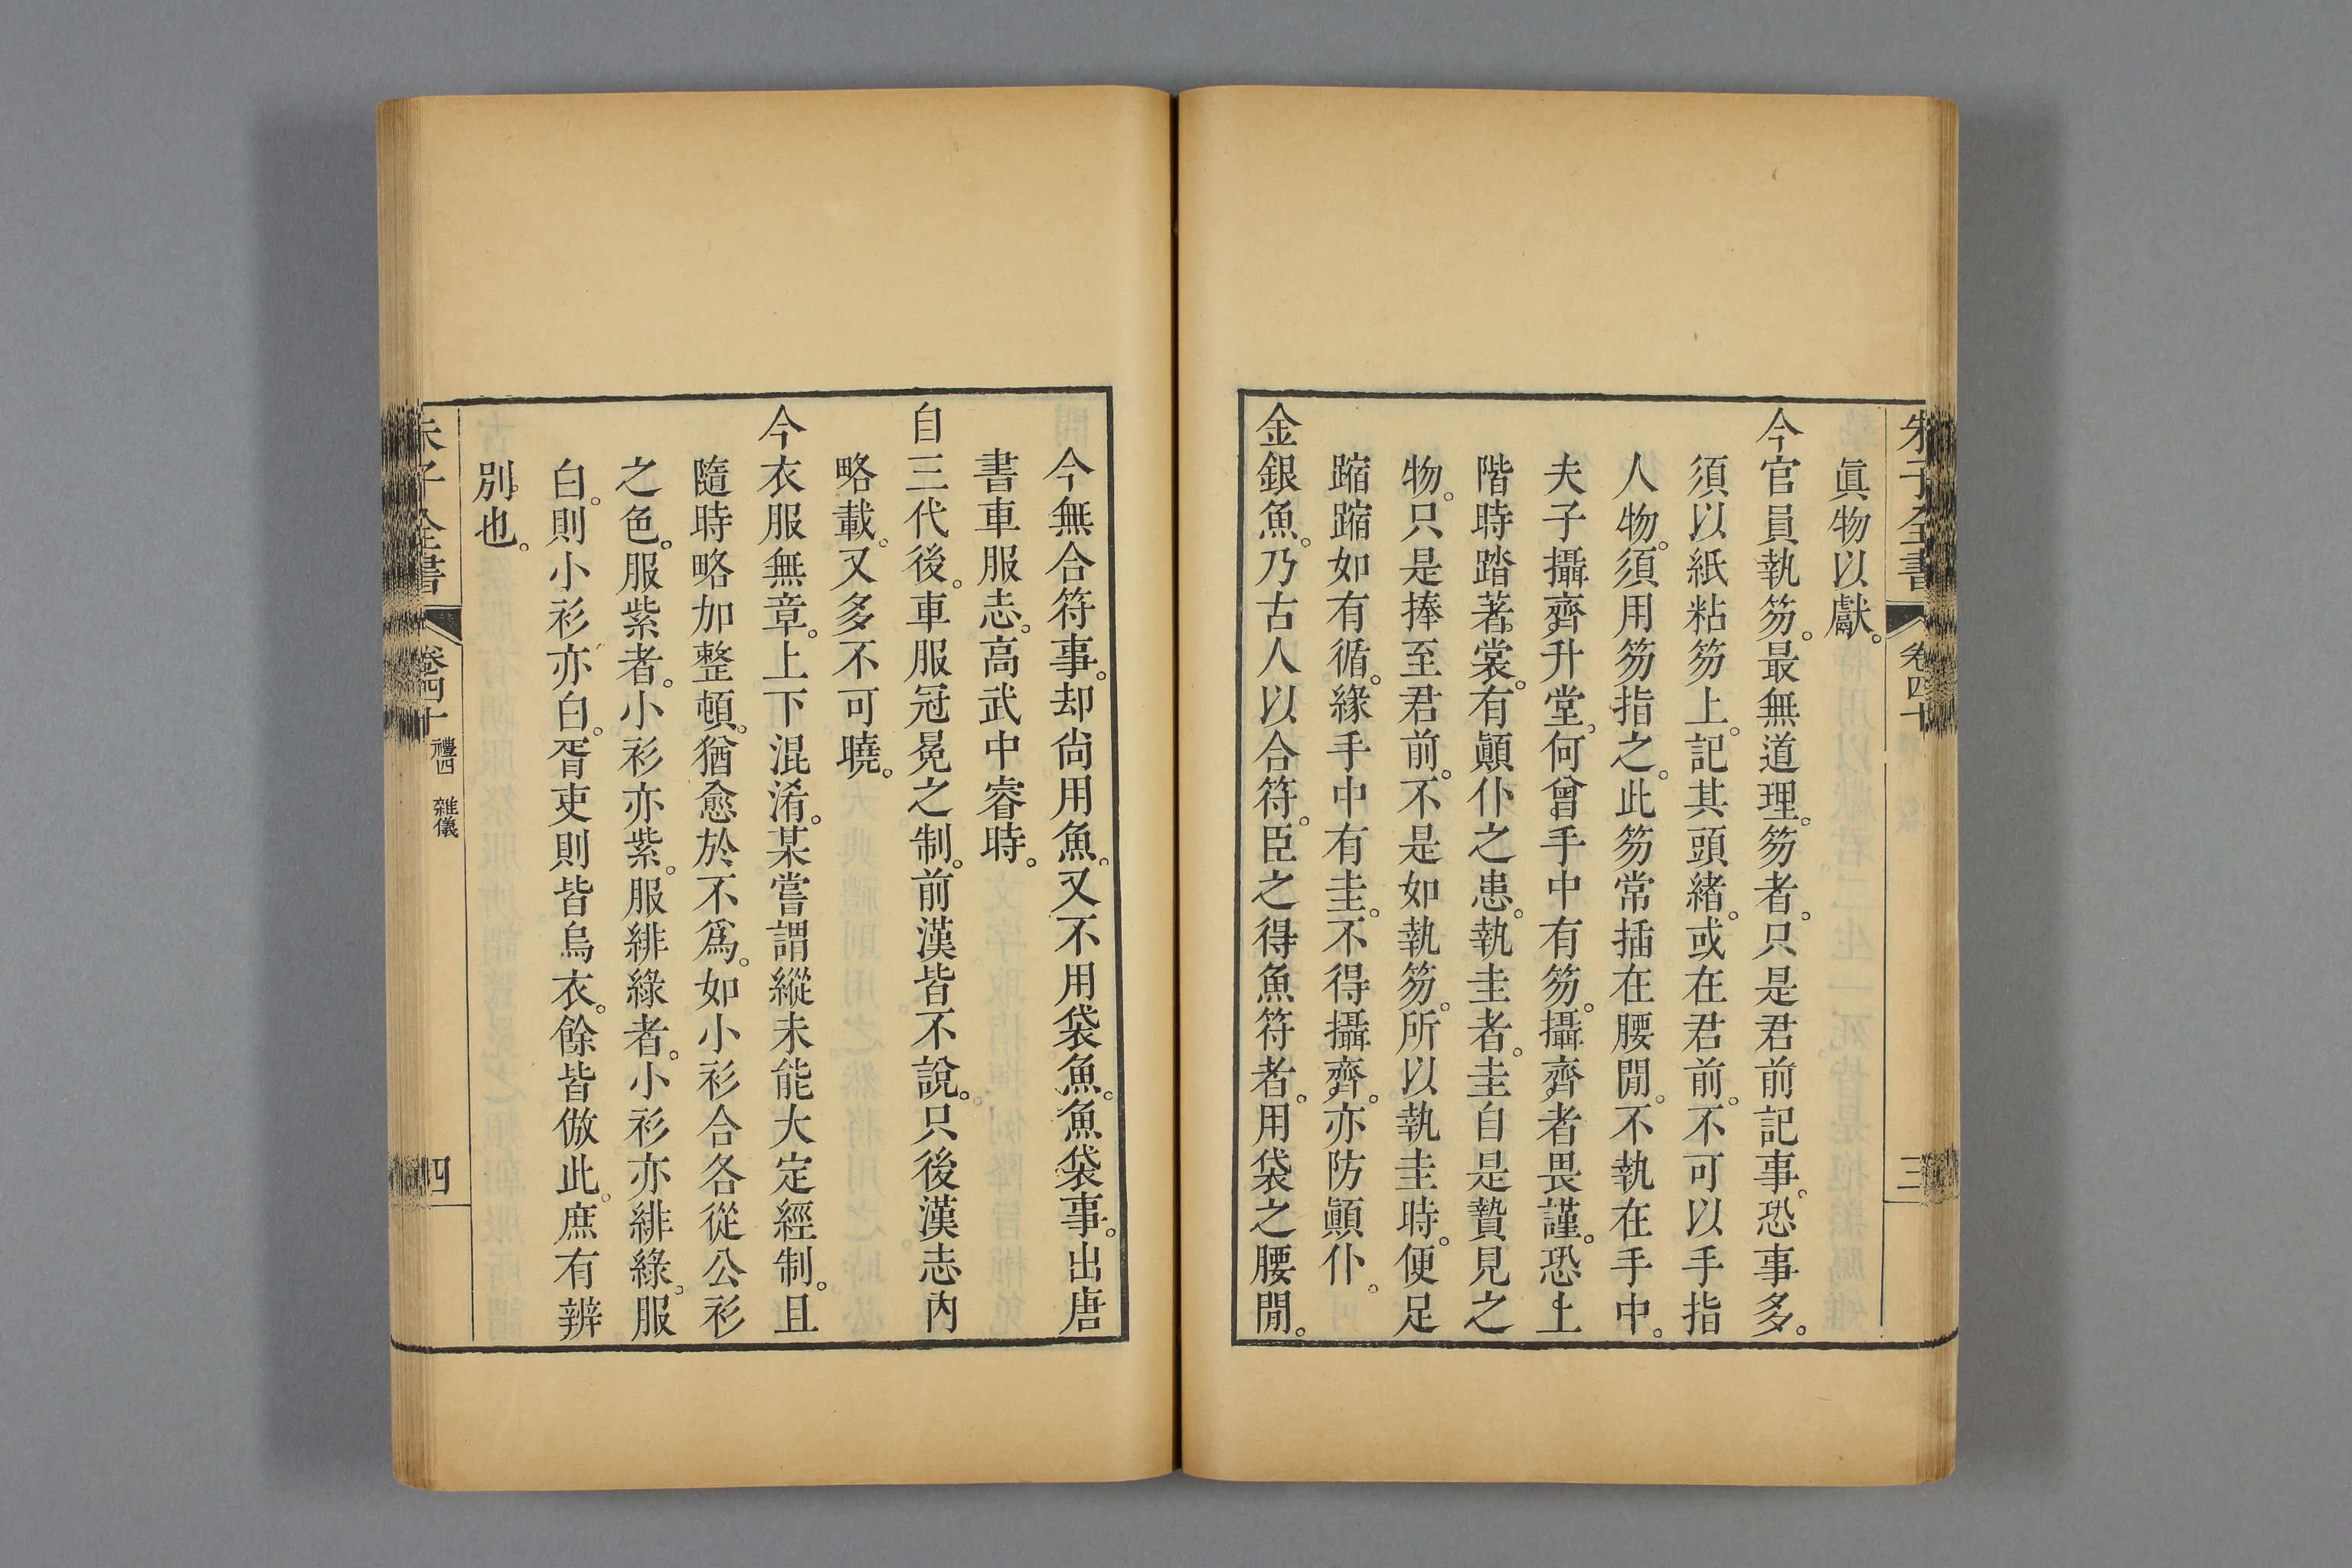 朱子全書 卷四十 三
眞物以獻。
今官員執笏。最無道理。笏者。只是君前記事。恐事多。
須以紙粘笏上。記其頭緒。或在君前。不可以手指
人物。須用笏指之。此笏常插在腰閒。不執在手中。
夫子攝齊升堂。何曾手中有笏。攝齊者畏謹。恐上
階時踏著裳。有顚仆之患。執圭者。圭自是贄見之
物。只是捧至君前。不是如執笏。所以執圭時。便足
蹜蹜如有循。緣手中有圭。不得攝齊。亦防顚仆。
金銀魚。乃古人以合符。臣之得魚符者。用袋之腰閒。
今無合符事。却尙用魚。又不用袋魚。魚袋事。出唐
書車服志。高武中睿時。
自三代後。車服冠冕之制。前漢皆不說。只後漢志內
略載。又多不可曉。
今衣服無章。上下混淆。某嘗謂縱未能大定經制。且
隨時略加整頓。猶愈於不爲。如小衫合各從公衫
之色。服紫者。小衫亦紫。服緋綠者。小衫亦緋綠。服
白。則小衫亦白。胥吏則皆烏衣。餘皆倣此。庶有辨
別也。
朱子全書 卷四十 禮四 雜儀 四